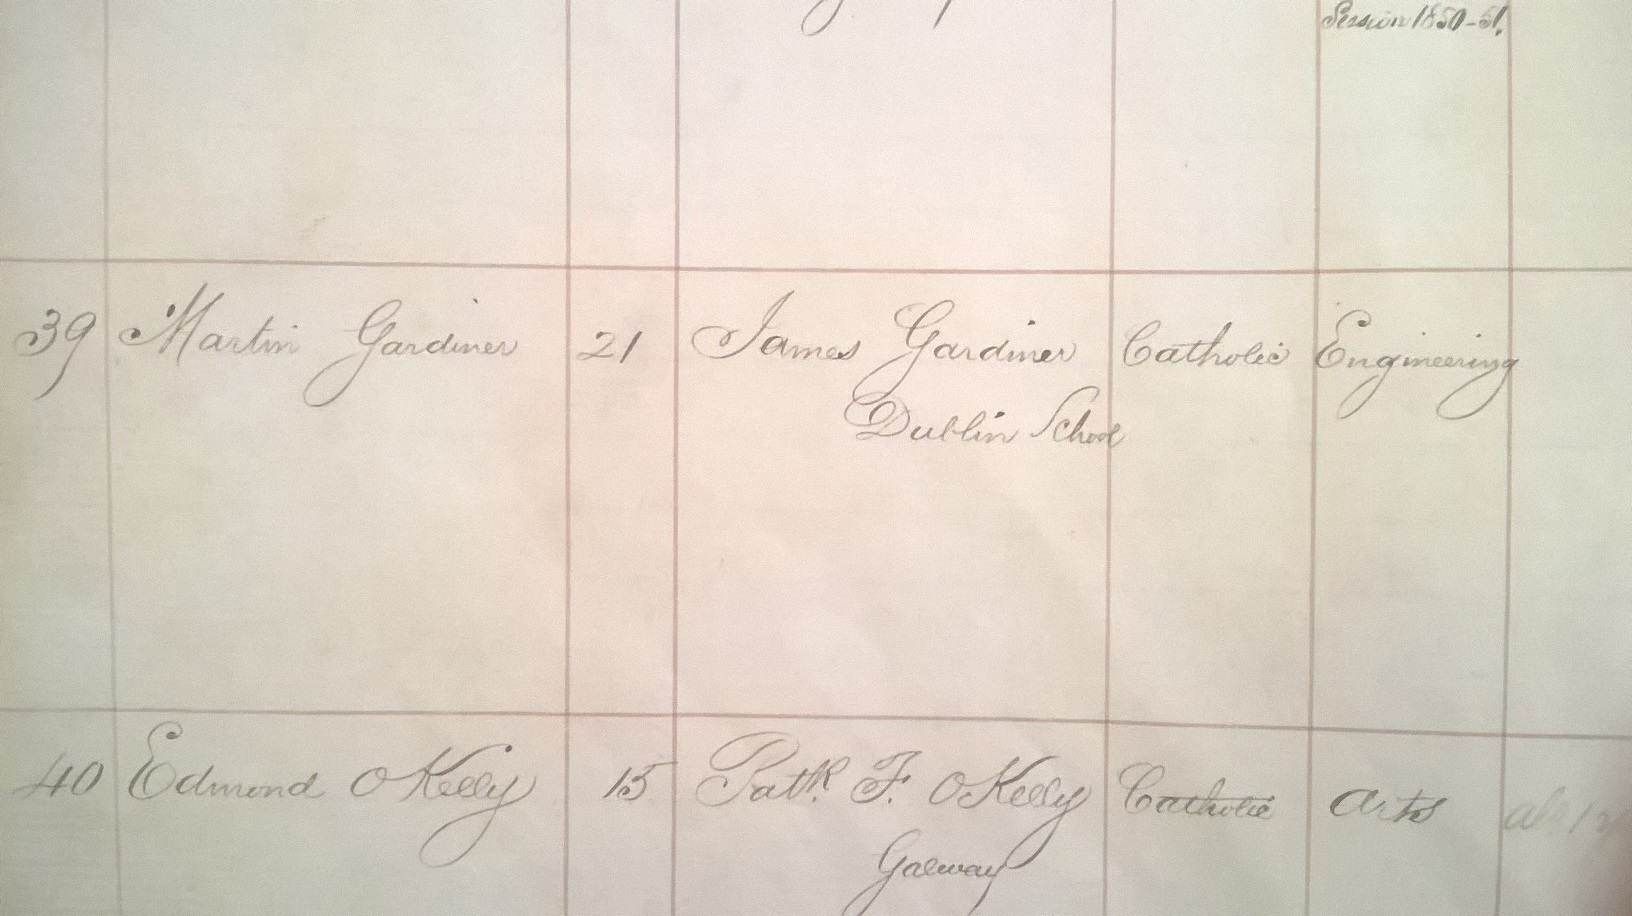 Session 1850-51.
39 Martin Gardiner 21 James Gardiner Catholic Engineering
Dublin School
40 Edmond OKelly 15 Patk. F. OKelly Catholic Arts
Galway